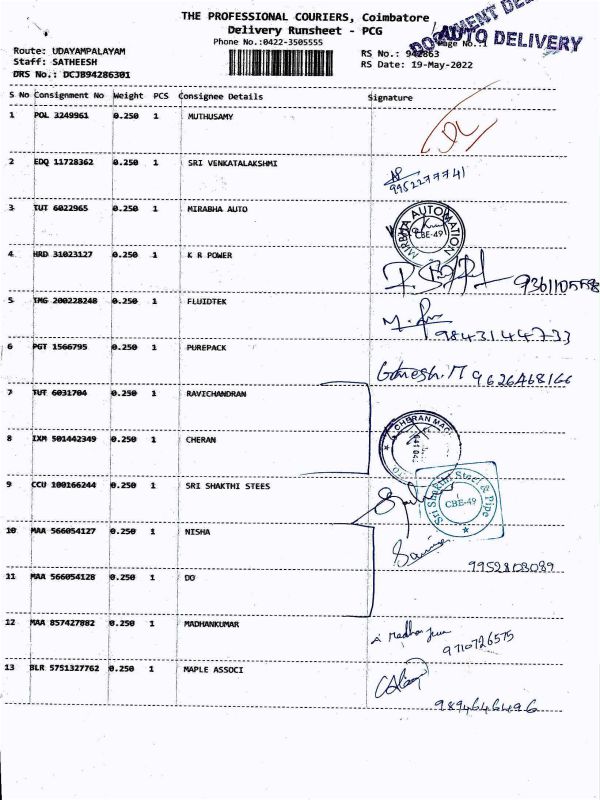 THE PROFESSIONAL COURIERS, Coimbatore
Delivery Runsheet - PCG
Phone No.:0422-3505555
DOCUMENT DEL
AUTO DELIVERY
Page No.:1
Route: UDAYAMPALAYAM
Staff: SATHEESH
DRS No.: DCJB94286301
RS No.: 942863
RS Date: 19-May-2022
S No Consignment No Weight PCS Consignee Details Signature
1 POL 3249961 0.250 1 MUTHUSAMY
2 EDQ 11728362 0.250 1 SRI VENKATALAKSHMI
9952277741
3 TUT 6022965 0.250 1 MIRABHA AUTO
MIRBHA AUTOMATION
CBE-49
4 HRD 31023127 0.250 1 K R POWER
5 IMG 200228248 0.250 1 FLUIDTEK
9843144733
6 PGT 1566795 0.250 1 PUREPACK
Ganesh.M 9626468166
7 TUT 6031704 0.250 1 RAVICHANDRAN
8 IXM 501442349 0.250 1 CHERAN
CHERAN
9 CCU 100166244 0.250 1 SRI SHAKTHI STEES
Sri Shakthi Steel & Pipe
CBE-49
10 MAA 566054127 0.250 1 NISHA
9952803089
11 MAA 566054128 0.250 1 DO
12 MAA 857427882 0.250 1 MADHANKUMAR
9710726575
13 BLR 5751327762 0.250 1 MAPLE ASSOCI
9894646496